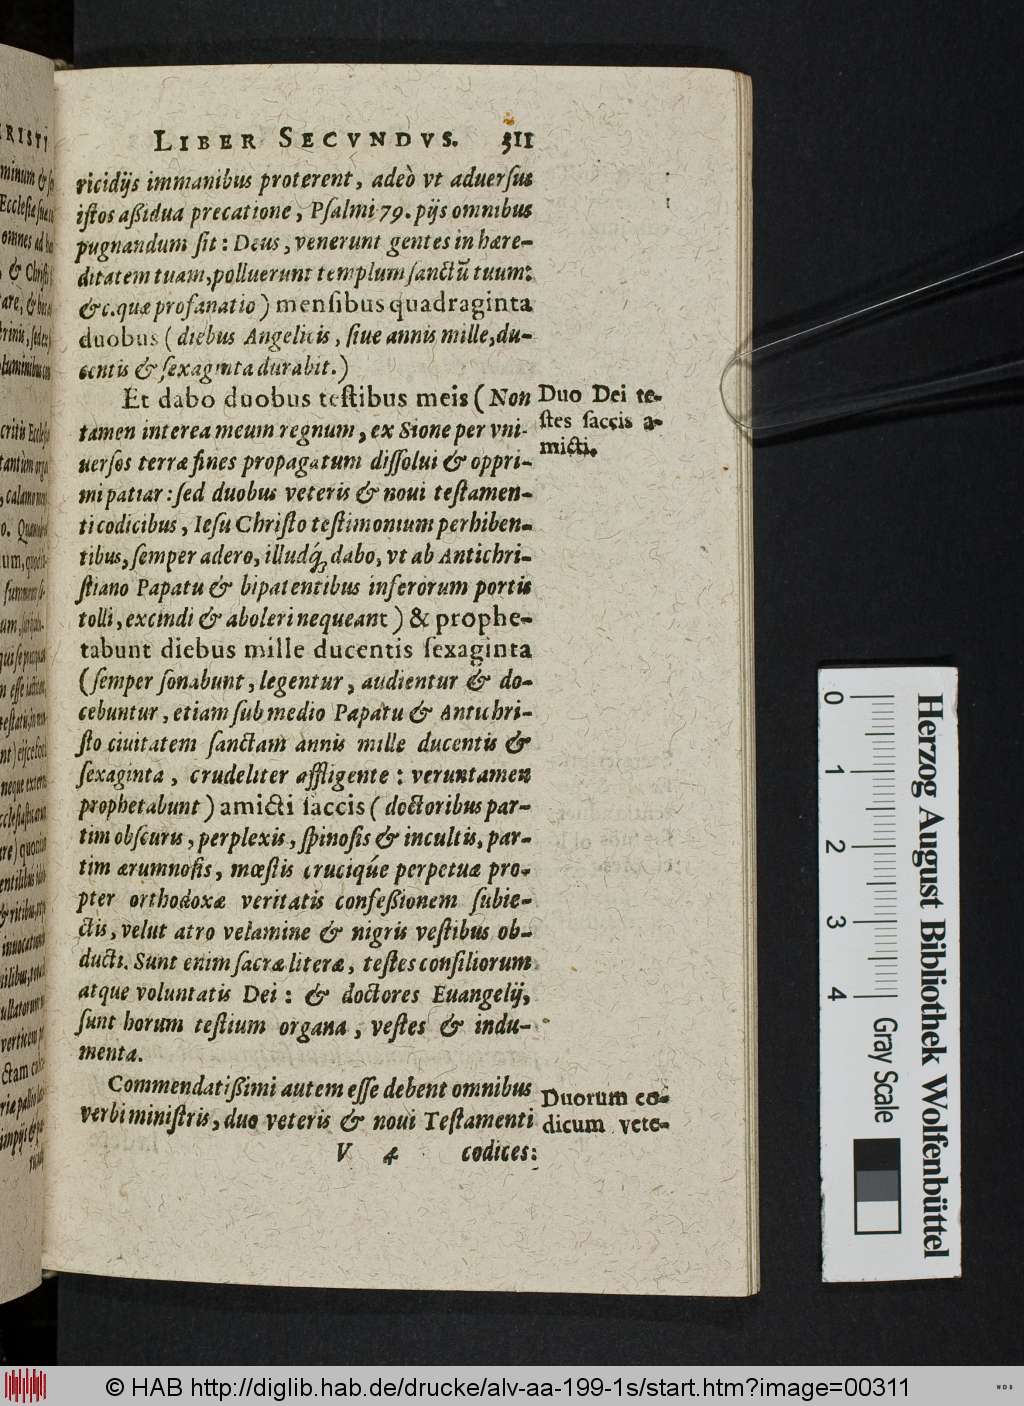 LIBER SECVNDVS. 311
ricidijs immanibus proterent, adeò vt aduersus
istos aßidua precatione, Psalmi 79. pijs omnibus
pugnandum sit: Deus, venerunt gentes in hære-
ditatem tuam, polluerunt templum sanctũ tuum:
&c. quæ profanatio) mensibus quadraginta
duobus (diebus Angelicis, siue annis mille, du-
centis & sexaginta durabit.)
Et dabo duobus testibus meis (Non
tamen interea meum regnum, ex Sione per vni-
uersos terræ fines propagatum dissolui & oppri-
mi patiar: sed duobus veteris & noui testamen-
ti codicibus, Iesu Christo testimonium perhiben-
tibus, semper adero, illudq́; dabo, vt ab Antichri-
stiano Papatu & bipatentibus inferorum portis
tolli, excindi & aboleri nequeant) & prophe-
tabunt diebus mille ducentis sexaginta
(semper sonabunt, legentur, audientur & do-
cebuntur, etiam sub medio Papatu & Antichri-
sto ciuitatem sanctam annis mille ducentis &
sexaginta, crudeliter affligente: veruntamen
prophetabunt) amicti saccis (doctoribus par-
tim obscuris, perplexis, spinosis & incultis, par-
tim ærumnosis, mœstis cruciqúe perpetuæ pro-
pter orthodoxæ veritatis confeßionem subie-
ctis, velut atro velamine & nigris vestibus ob-
ducti. Sunt enim sacræ literæ, testes consiliorum
atque voluntatis Dei: & doctores Euangelij,
sunt horum testium organa, vestes & indu-
menta.
Commendatißimi autem esse debent omnibus
verbi ministris, duo veteris & noui Testamenti
V 4 codices:
Duo Dei te-
stes saccis a-
micti.
Duorum co-
dicum vete-
0 1 2 3 4
Gray Scale
Herzog August Bibliothek Wolfenbüttel
© HAB http://diglib.hab.de/drucke/alv-aa-199-1s/start.htm?image=00311